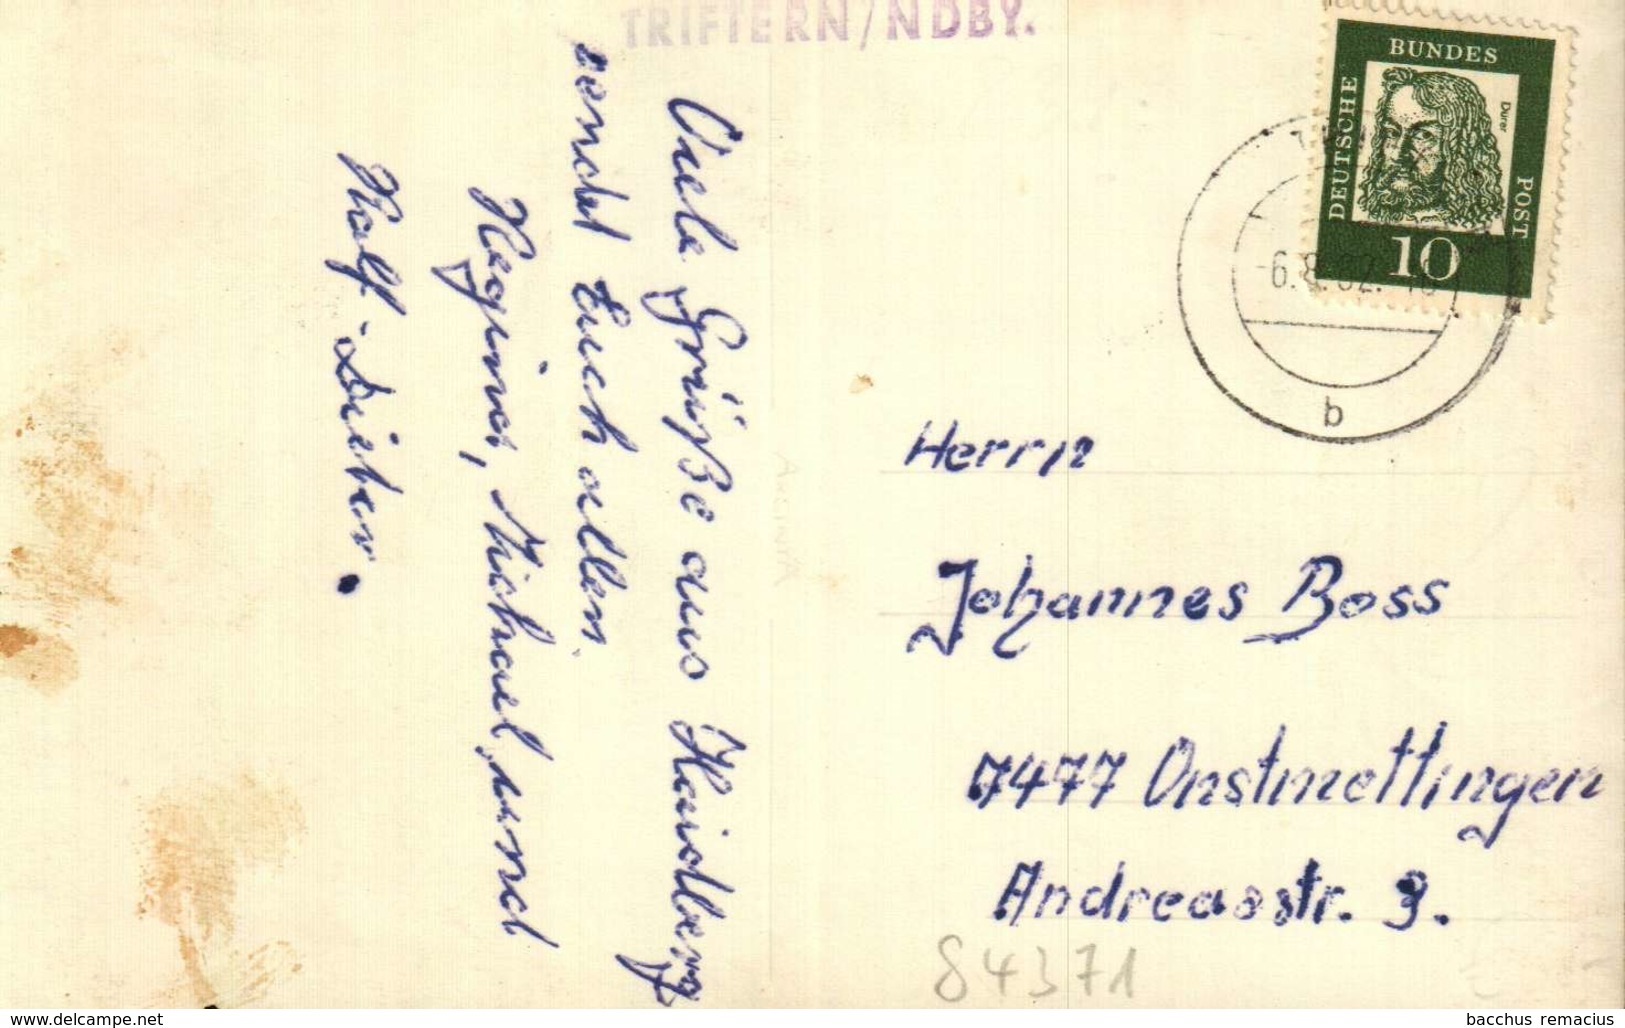 TRIFTERN/NDBY.
Viele Grüße aus Haidberg
sendet Euch allen
Regina, Michael, und
Ralf-Dieter.
DEUTSCHE BUNDES POST
Dürer
10
-6.8.62.
b
Herrn
Johannes Boss
7477 Onstmettingen
Andreasstr. 9.
84371
www.delcampe.net
bacchus remacius